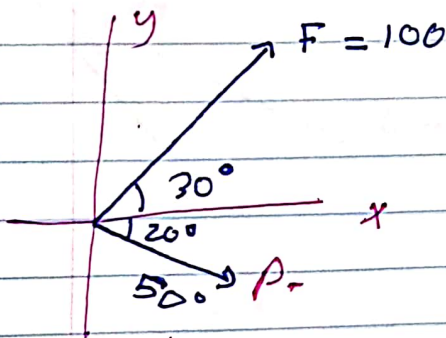 y
F = 100
30°
x
20°
50° P